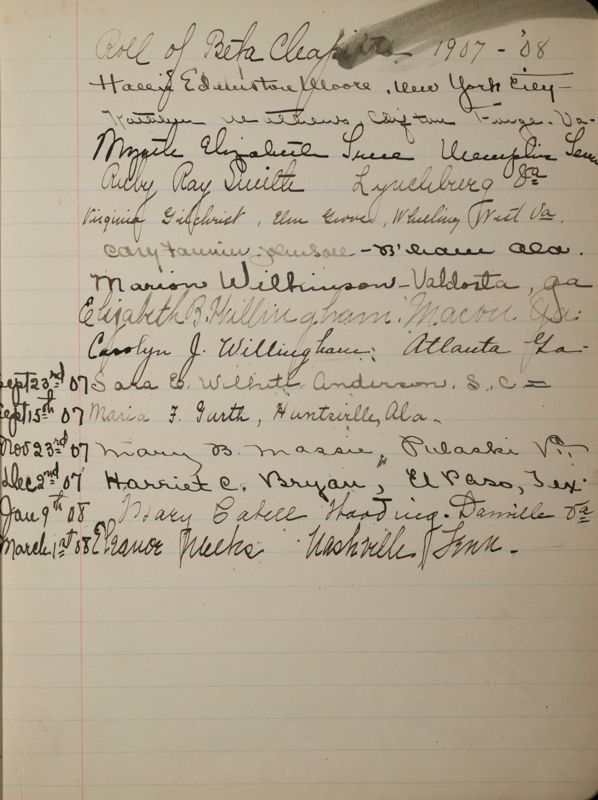 Roll of Beta Chapter 1907-'08
Hallie Edmiston Moore, New York City
Kathleen Mathews, Clifton Forge. Va-
Myrtle Elizabeth Memphis Tenn
Ruby Ray Smith Lynchburg Va
Virginia Gilchrist, Elm Grove, Wheeling, West Va.
Cary Fannin Johnson - B'ham Ala.
Marion Wilkinson - Valdosta, Ga
Elizabeth B. Willingham. Macon. Ga.
Carolyn J. Willingham; Atlanta Ga-
Sept 23rd 07 Sara E. Wilhite Anderson. S.C =
Sept 15th 07 Maria F. Garth, Huntsville, Ala.
Nov 23rd 07 Mary B. Massie, Pulaski Va.
Dec 2nd 07 Harriet C. Bryan, El Paso, Tex.
Jan 9th 08 Mary Cabell Harding. Danville Va
March 1st 08 Eleanor Weeks Nashville Tenn.